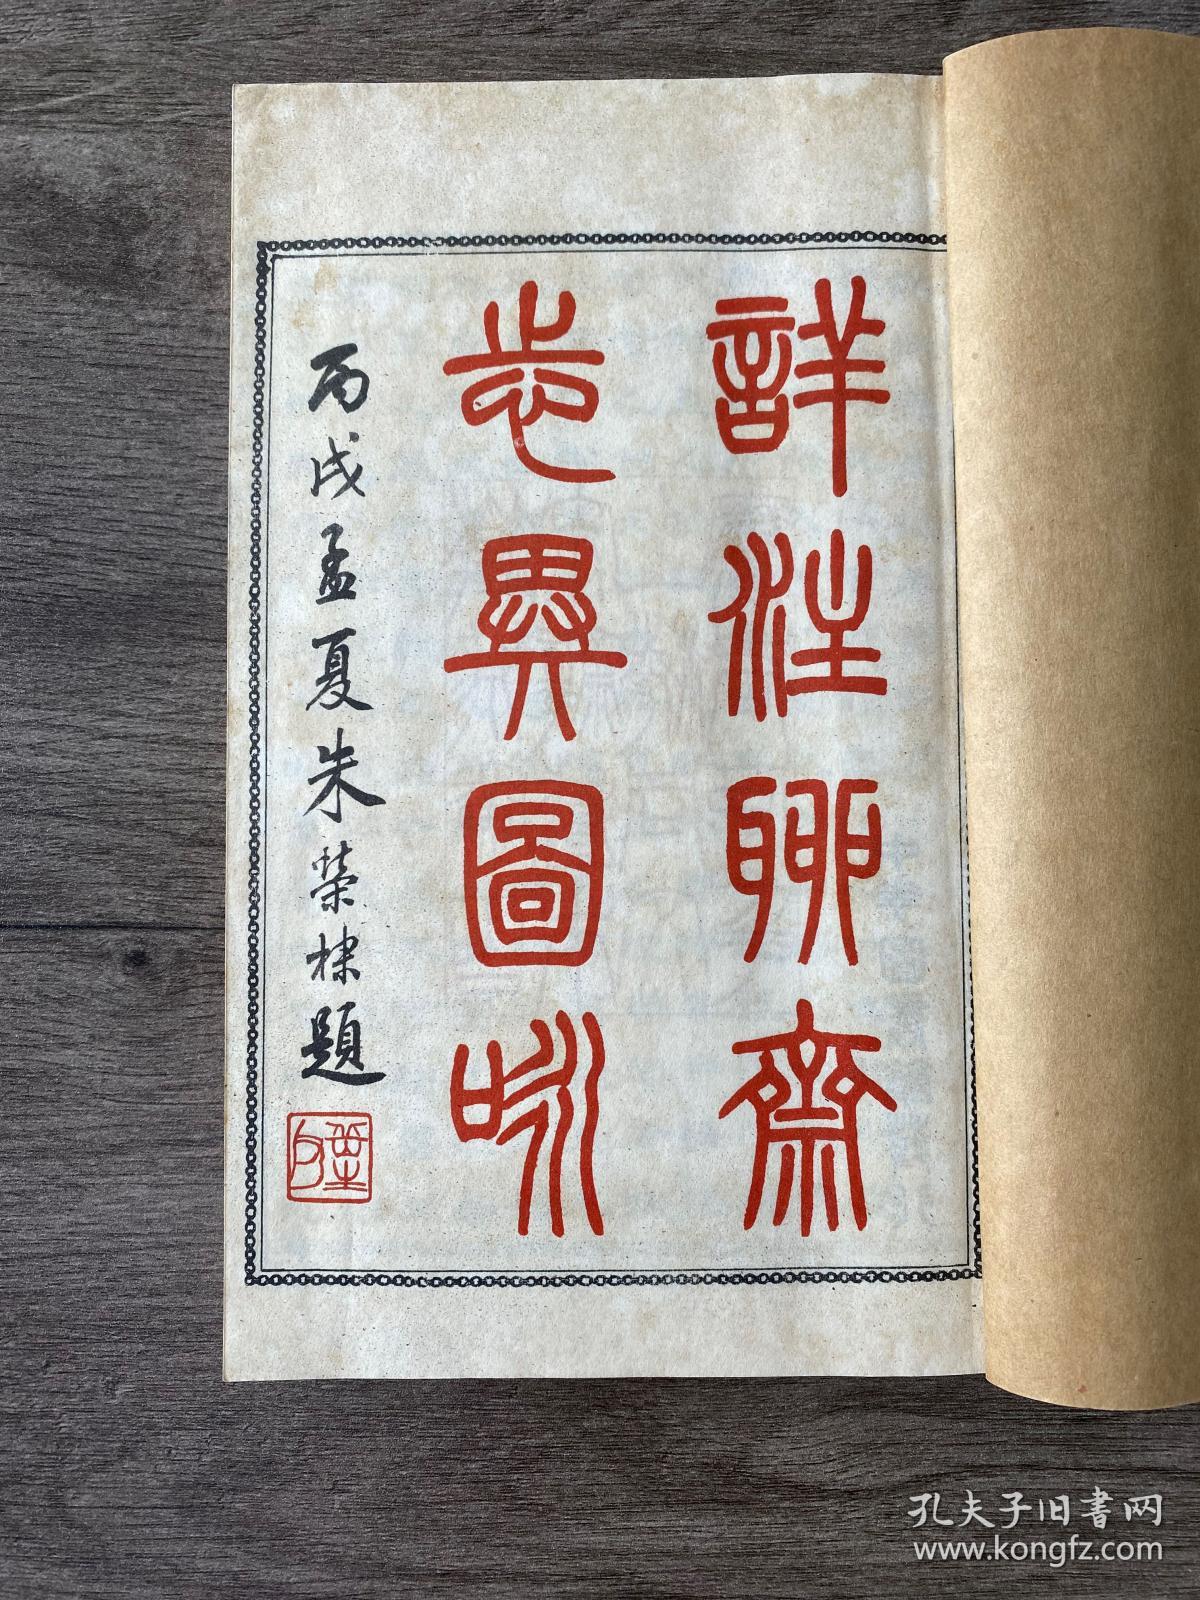 詳注聊齋
志異圖咏
丙戌孟夏朱榮棣題
孔夫子旧書网
www.kongfz.com